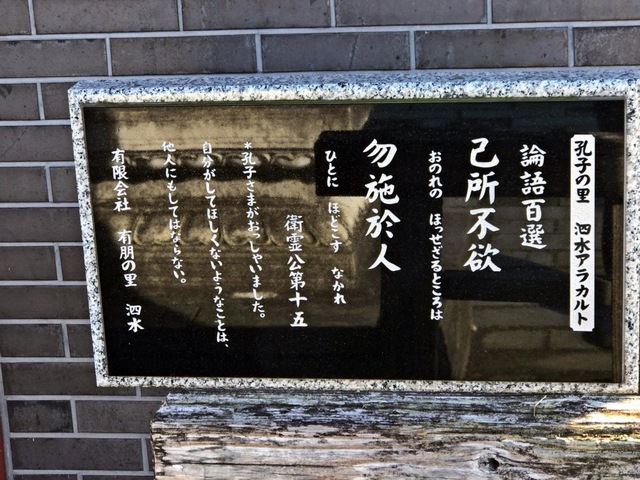 孔子の里 泗水アラカルト
論語百選
己所不欲
おのれの ほっせざるところは
勿施於人
ひとに ほどこす なかれ
衛霊公第十五
*孔子さまがおっしゃいました。
自分がしてほしくないようなことは、
他人にもしてはならない。
有限会社 有朋の里 泗水